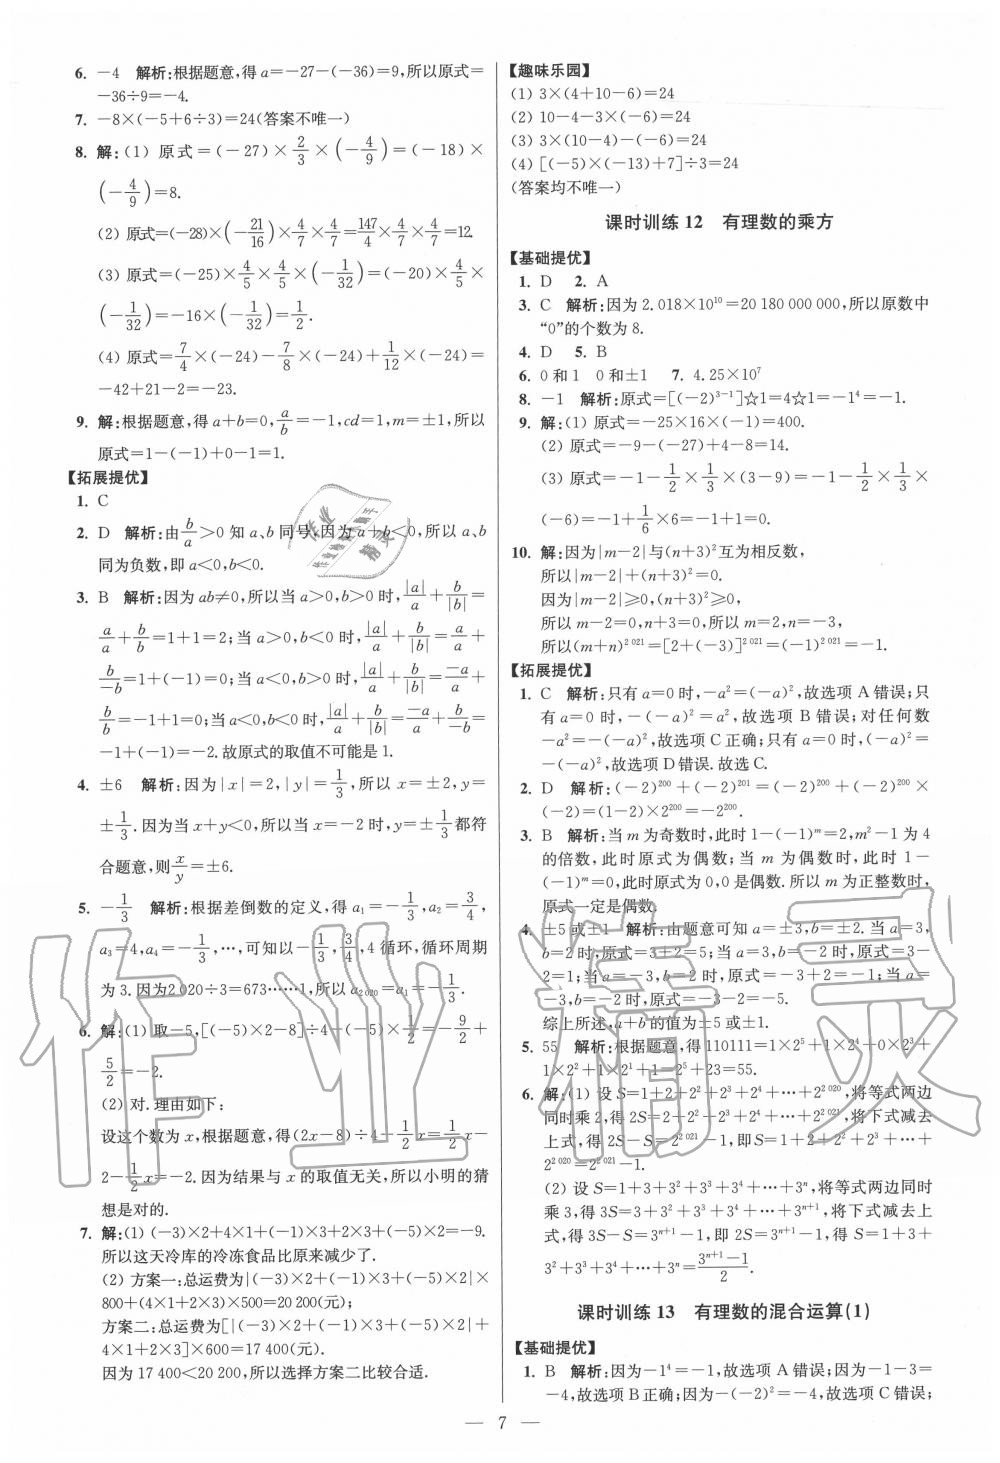 6. －4　解析:根据题意,得 a=－27－(－36)=9,所以原式=
－36÷9=－4.
7. －8×(－5+6÷3)=24(答案不唯一)
8. 解:(1) 原式=(－27)×2/3×(－4/9)=(－18)×
(－4/9)=8.
(2) 原式=(－28)×(－21/16)×4/7×4/7=147/4×4/7×4/7=12.
(3) 原式=(－25)×4/5×4/5×(－1/32)=(－20)×4/5×
(－1/32)=－16×(－1/32)=1/2.
(4) 原式=7/4×(－24)－7/8×(－24)+1/12×(－24)=
－42+21－2=－23.
9. 解:根据题意,得 a+b=0,a/b=－1,cd=1,m=±1,所以
原式=1－(－1)+0－1=1.
【拓展提优】
1. C
2. D　解析:由b/a>0 知 a、b 同号,因为 a+b<0,所以 a、b
同为负数,即 a<0,b<0.
3. B　解析:因为 ab≠0,所以当 a>0,b>0 时,|a|/a+b/|b|=
a/a+b/b=1+1=2;当 a>0,b<0 时,|a|/a+b/|b|=a/a+
b/－b=1+(－1)=0;当 a<0,b>0 时,|a|/a+b/|b|=－a/a+
b/b=－1+1=0;当 a<0,b<0 时,|a|/a+b/|b|=－a/a+b/－b=
－1+(－1)=－2.故原式的取值不可能是 1.
4. ±6　解析:因为|x|=2,|y|=1/3,所以 x=±2,y=
±1/3.因为当 x+y<0,所以当 x=－2 时,y=±1/3都符
合题意,则x/y=±6.
5. －1/3　解析:根据差倒数的定义,得 a₁=－1/3,a₂=3/4,
a₃=4,a₄=－1/3,…,可知以－1/3,3/4,4 循环,循环周期
为 3.因为2 020÷3=673……1,所以 a₂ ₀₂₀=a₁=－1/3.
6. 解:(1) 取－5,[(－5)×2－8]÷4－(－5)×1/2=－9/2+
5/2=－2.
(2) 对.理由如下:
设这个数为 x,根据题意,得(2x－8)÷4－1/2x=1/2x－
2－1/2x=－2.因为结果与 x 的取值无关,所以小明的猜
想是对的.
7. 解:(1) (－3)×2+4×1+(－1)×3+2×3+(－5)×2=－9.
所以这天冷库的冷冻食品比原来减少了.
(2) 方案一:总运费为|(－3)×2+(－1)×3+(－5)×2|×
800+(4×1+2×3)×500=20 200(元);
方案二:总运费为[|(－3)×2+(－1)×3+(－5)×2|+
4×1+2×3]×600=17 400(元);
因为 17 400<20 200,所以选择方案二比较合适.
【趣味乐园】
(1) 3×(4+10－6)=24
(2) 10－4－3×(－6)=24
(3) 3×(10－4)－(－6)=24
(4) [(－5)×(－13)+7]÷3=24
(答案均不唯一)
课时训练 12　有理数的乘方
【基础提优】
1. D　2. A
3. C　解析:因为 2.018×10¹⁰=20 180 000 000,所以原数中
“0”的个数为 8.
4. D　5. B
6. 0 和 1　0 和±1　7. 4.25×10⁷
8. －1　解析:原式=[(－2)³⁻¹]☆1=4☆1=－1⁴=－1.
9. 解:(1) 原式=－25×16×(－1)=400.
(2) 原式=－9－(－27)+4－8=14.
(3) 原式=－1－1/2×1/3×(3－9)=－1－1/2×1/3×
(－6)=－1+1/6×6=－1+1=0.
10. 解:因为|m－2|与(n+3)²互为相反数,
所以|m－2|+(n+3)²=0.
因为|m－2|≥0,(n+3)²≥0,
所以 m－2=0,n+3=0,所以 m=2,n=－3,
所以(m+n)²⁰²¹=[2+(－3)]²⁰²¹=(－1)²⁰²¹=－1.
【拓展提优】
1. C　解析:只有 a=0 时,－a²=(－a)²,故选项 A 错误;只
有 a=0 时,－(－a)²=a²,故选项 B 错误;对任何数
－a²=－(－a)²,故选项 C 正确;只有 a=0 时,(－a)²=
－(－a)²,故选项D 错误.故选 C.
2. D　解析:(－2)²⁰⁰+(－2)²⁰¹=(－2)²⁰⁰+(－2)²⁰⁰×
(－2)=(1－2)×2²⁰⁰=－2²⁰⁰.
3. B　解析:当 m 为奇数时,此时 1－(－1)ᵐ=2,m²－1 为 4
的倍数,此时原式为偶数;当 m 为偶数时,此时 1－
(－1)ᵐ=0,此时原式为 0,0 是偶数.所以 m 为正整数时,
原式一定是偶数.
4. ±5或±1　解析:由题意可知 a=±3,b=±2.当 a=3,
b=2时,原式=3+2=5;当 a=3,b=－2 时,原式=3－
2=1;当 a=－3,b=2 时,原式=－3+2=－1;当 a=
－3,b=－2 时,原式=－3－2=－5.
综上所述,a+b 的值为±5 或±1.
5. 55　解析:根据题意,得 110111=1×2⁵+1×2⁴+0×2³+
1×2²+1×2¹+1=2⁵+23=55.
6. 解:(1) 设 S=1+2+2²+2³+2⁴+…+2²⁰²⁰,将等式两边
同时乘 2,得 2S=2+2²+2³+2⁴+…+2²⁰²¹,将下式减去
上式,得 2S－S=2²⁰²¹－1,即S=1+2+2²+2³+…+
2²⁰²⁰=2²⁰²¹－1.
(2) 设 S=1+3+3²+3³+3⁴+…+3ⁿ,将等式两边同时
乘 3,得 3S=3+3²+3³+3⁴+…+3ⁿ⁺¹,将下式减去上
式,得 3S－S=3ⁿ⁺¹－1,即 2S=3ⁿ⁺¹－1,得 S=1+3+
3²+3³+3⁴+…+3ⁿ=(3ⁿ⁺¹－1)/2.
课时训练 13　有理数的混合运算(1)
【基础提优】
1. B　解析:因为－1⁴=－1,故选项 A 错误;因为－1－3=
－4,故选项 B 正确;因为－(－2)²=－4,故选项 C 错误;
— 7 —
作业精灵